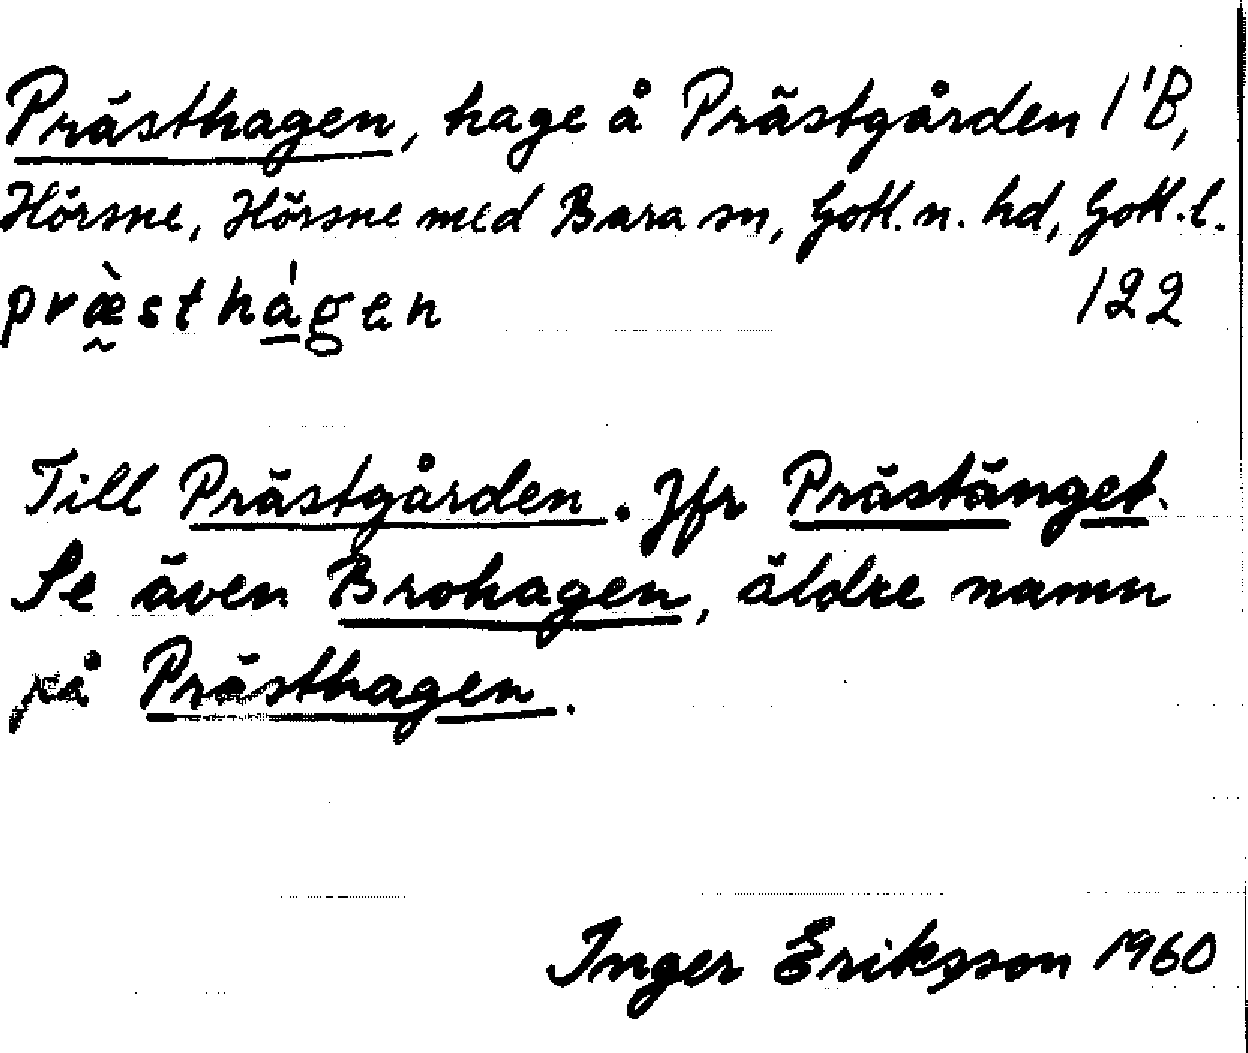 Prästhagen, hage å Prästgården 1'B,
Hörsne, Hörsne med Bara sn, Gotl. n. hd, Gotl. l.
præ̀sthágen 122
Till Prästgården. Jfr Prästänget.
Se även Brohagen, äldre namn
på Prästhagen.
Inger Eriksson 1960